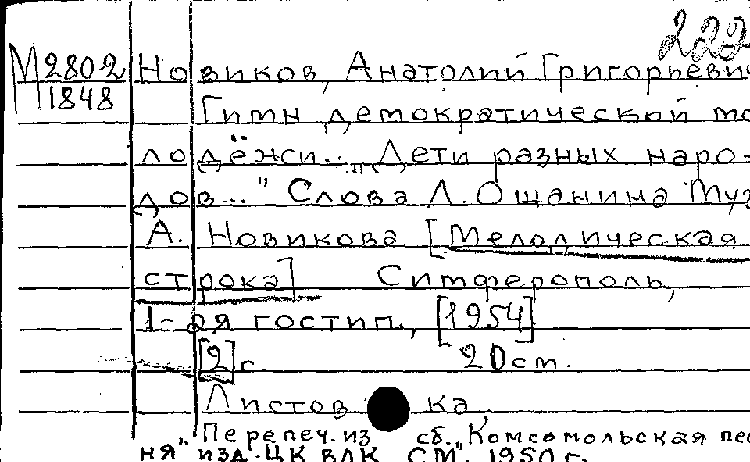 222
М 2802 Новиков, Анатолий Григорьевич
1848
Гимн демократической мо-
лодёжи... "Дети разных наро-
дов..." Слова Л. Ошанина Муз
А. Новикова [Мелодическая
строка] Симферополь,
1-ая гостип., [1954]
[2] с 20 см.
Листовка.
Перепеч. из сб. "Комсомольская пес
ня" изд. ЦК ВЛКСМ". 1950 г.